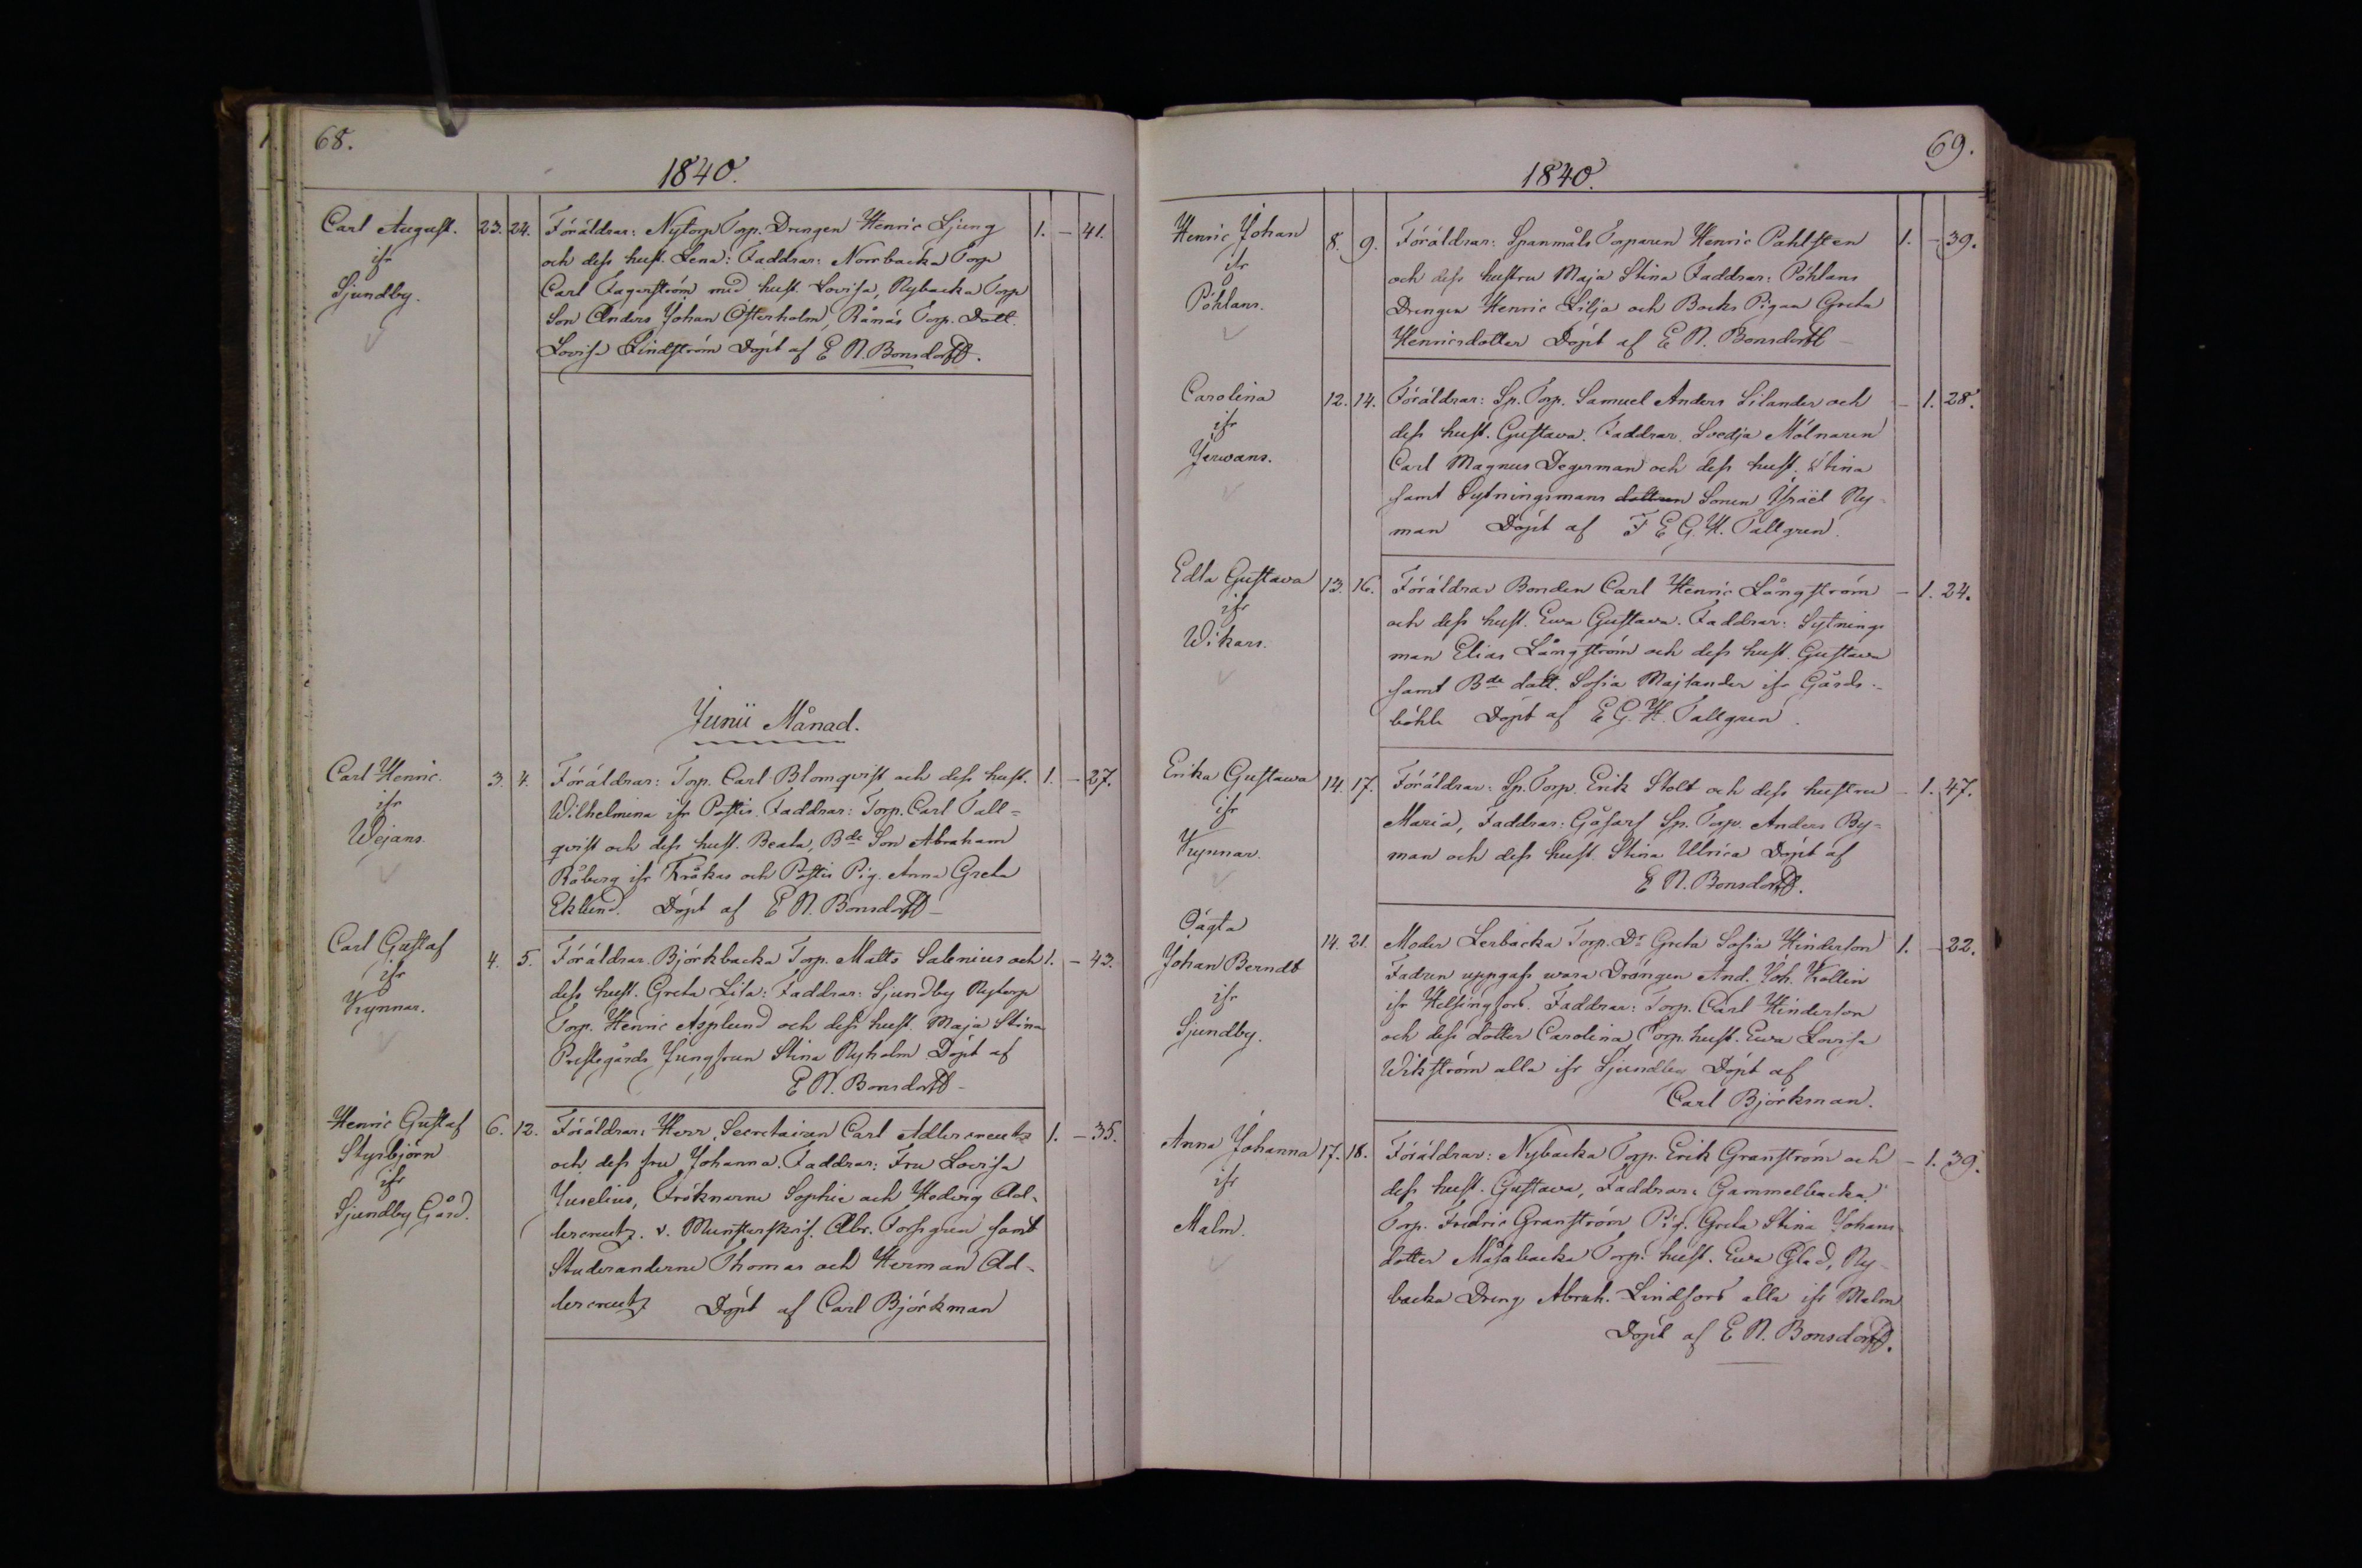 68.
1840.
Carl August.
ifr
Sjundby.
23. 24.
Föräldrar: Nytorp Torp. Drengen Henric Ljung
och dess hust. Lena: Faddrar: Norrbacka Torp
Carl Fagerström med hust. Lovisa, Nybacka Torp
Son Anders Johan Österholm, Rånäs Torp. Dott.
Lovisa Lindström Döpt af E N. Bonsdorff.
1. – 41.
Junii Månad.
Carl Henric.
ifr
Wejans.
3. 4.
Föräldrar: Torp. Carl Blomqvist och dess hust.
Wilhelmina ifr Postis. Faddrar: Torp. Carl Tall=
qvist och dess hust. Beata, Bde Son Abraham
Råberg ifr Kråkas och Postis Pig. Anna Greta
Eklund. Döpt af E N. Bonsdorff –
1. – 27.
Carl Gustaf
ifr
Kynnar.
4. 5.
Föräldrar. Björkbacka Torp. Matts Salenius och
dess hust. Greta Lisa: Faddrar: Sjundby Nytorp
Torp. Henric Asplund och dess hust. Maja Stina
Prestegårds Jungfrun Stina Nyholm Döpt af
E N. Bonsdorff –
1. – 43.
Henric Gustaf
Styrbjörn
ifr
Sjundby Gård.
6. 12.
Föräldrar: Herr Secretairen Carl Adlercreutz
och dess fru Johanna. Faddrar: Fru Lovisa
Juselius, Fröknarne Sophie och Hedvig Ad-
lercreutz. v. Munsterskrif. Abr. Forssgren samt
Studeranderne Thomas och Herman Ad-
lercreutz Döpt af Carl Björkman
1. – 35.
69.
1840.
Henric Johan
ifr
Pöhlans.
8. 9.
Föräldrar: Spanmåls Torparen Henric Pahlsten
och dess hustru Maja Stina Faddrar: Pöhlans
Drengen Henric Lilja och Backs Pigan Greta
Henricsdotter Döpt af E N. Bonsdorff –
1. – 39.
Carolina
ifr
Jerwans.
12. 14.
Föräldrar: Sp. Torp. Samuel Anders Silander och
dess hust. Gustava. Faddrar. Svedja Mölnaren
Carl Magnus Degerman och dess hust. Stina
samt Sytningsmans dottren Sonen Israël Ny-
man Döpt af F E G. H. Tallgren.
– 1. 28.
Edla Gustava
ifr
Wikars.
13. 16.
Föräldrar Bonden Carl Henric Långström
och dess hust. Ewa Gustava. Faddrar: Sytnings
man Elias Långström och dess hust. Gustava
samt Bde dott. Sofia Majlander ifr Gårds-
böhle Döpt af E G. H. Tallgren.
– 1. 24.
Erika Gustawa
ifr
Kynnar.
14. 17.
Föräldrar: Sp. Torp. Erik Stolt och dess hustru
Maria, Faddrar: Gåsars Sp. Torp. Anders By=
man och dess hust. Stina Ulrica Döpt af
E N. Bonsdorff.
– 1. 47.
Oägta
Johan Berndt
ifr
Sjundby.
14. 21.
Moder Lerbacka Torp. Dr Greta Sofia Hinderson
Fadren uppgafs wara Drängen And. Joh. Kollin
ifr Helsingfors. Faddrar: Torp. Carl Hinderson
och dess dotter Carolina, Torp. hust. Ewa Lovisa
Wikström alla ifr Sjundby Döpt af
Carl Björkman.
1. – 22.
Anna Johanna
ifr
Malm.
17. 18.
Föräldrar: Nybacka Torp. Erik Granström och
dess hust. Gustava, Faddrar: Gammelbacka
Torp. Fredric Granström Pig. Greta Stina Johans-
dotter Måsabacka Torp. hust. Ewa Glad, Ny-
backa Dreng Abrah. Lindfors alla ifr Malm
Döpt af E N. Bonsdorff.
– 1. 39.